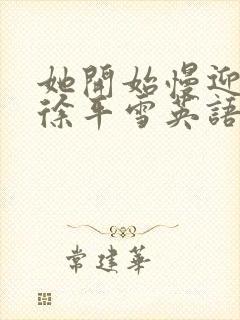 她開始慢迎
徐平雪英語
常建華